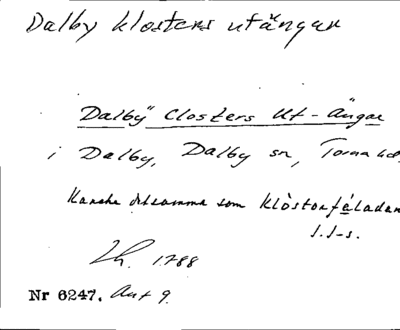 Dalby klosters utängar
Dalby Closters Ut-Ängar
i Dalby, Dalby sn, Torna hd,
Kanske detsamma som Klosterfäladen
S.J-s.
1788
Nr 6247. Avt 9.